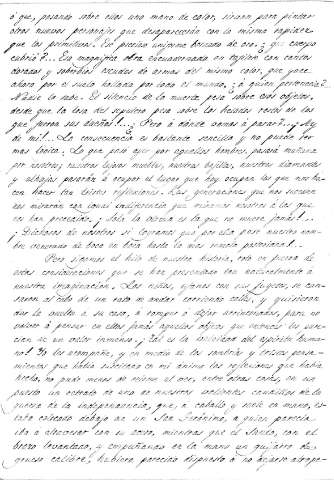 ó que, pasando sobre ellos una mano de color, sirven para pintar
otros nuevos personajes que desaparecerán con la misma rapidez
que los primitivos. Ese precioso uniforme bordado de oro, ¿qué cuerpo
cubrió?... Esa magnífica obra encuadernada en tafilete con cantos
dorados y soberbios escudos de armas del mismo color, que yace
ahora por el suelo hollada por todo el mundo, ¿á quién perteneció?
Nadie lo sabe. El silencio de la muerte pesa sobre esos objetos,
desde que la losa del sepulcro pesa sobre los helados restos de los
que fueron sus dueños!... Pero á dónde vamos á parar?... ¡Ay
de mí!... La consecuencia es bastante sencilla y no puede ser
mas lógica. Lo que pasó ayer por aquellos hombres, pasará mañana
por nosotros; nuestros lujosos muebles, nuestras vajillas, nuestros diamantes
y alhajas pasarán á ocupar el lugar que hoy ocupan los que nos ha-
cen hacer tan tristes reflexiones. Las generaciones que nos sucedan
los mirarán con igual indiferencia que miramos nosotros á los que
nos han precedido. ¡Sola la ciencia es la que no muere jamás!...
¡Dichosos de nosotros si logramos que por ella pase nuestro nom-
bre venerado de boca en boca hasta la mas remota posteridad!...
Pero sigamos el hilo de nuestra historia, esto en fuerza de
estas consideraciones que se han presentado tan naturalmente á
nuestra imaginacion. Los niños, ufanos con sus juguetes, se can-
saron al cabo de un rato de andar corriendo calles, y quisieron
dar la vuelta á su casa, ó romper ó dejar arrinconados, para no
volver á pensar en ellos jamás aquellos objetos que entonces les pare-
cian de un valor inmenso; ¡Tal es la veleidad del espíritu huma-
no! Yo los acompañé, y en medio de las sombrías y tristes pensa-
mientos que habia suscitado en mi ánimo las reflexiones que habia
hecho, no pude menos de reirme al ver, entre otras cosas, en un
puesto un retrato de uno de nuestros valientes caudillos de la
guerra de la independencia, que, á caballo y sable en mano, es-
taba colocado debajo de un San Gerónimo, á quien parecia
iba á atravesar con su acero, mientras que el Santo, con el
brazo levantado, y empuñando en la mano un guijarro de
grueso calibre, hubiera parecido dispuesto á no dejarse atrope-